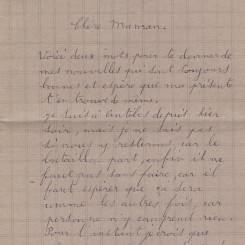 Chère Maman.
Voici deux mots pour te donner de
mes nouvelles qui sont toujours
bonnes et espère que ma présente
t'en trouve de même.
je suis à depuis hier
soir, mais je ne sais pas
si nous y resterons, car le
bataillon part, enfin il ne
faut pas s'en faire, car il
faut espérer que ça sera
comme les autres fois, car
personne n'y comprend rien.
Pour l'instant je crois que